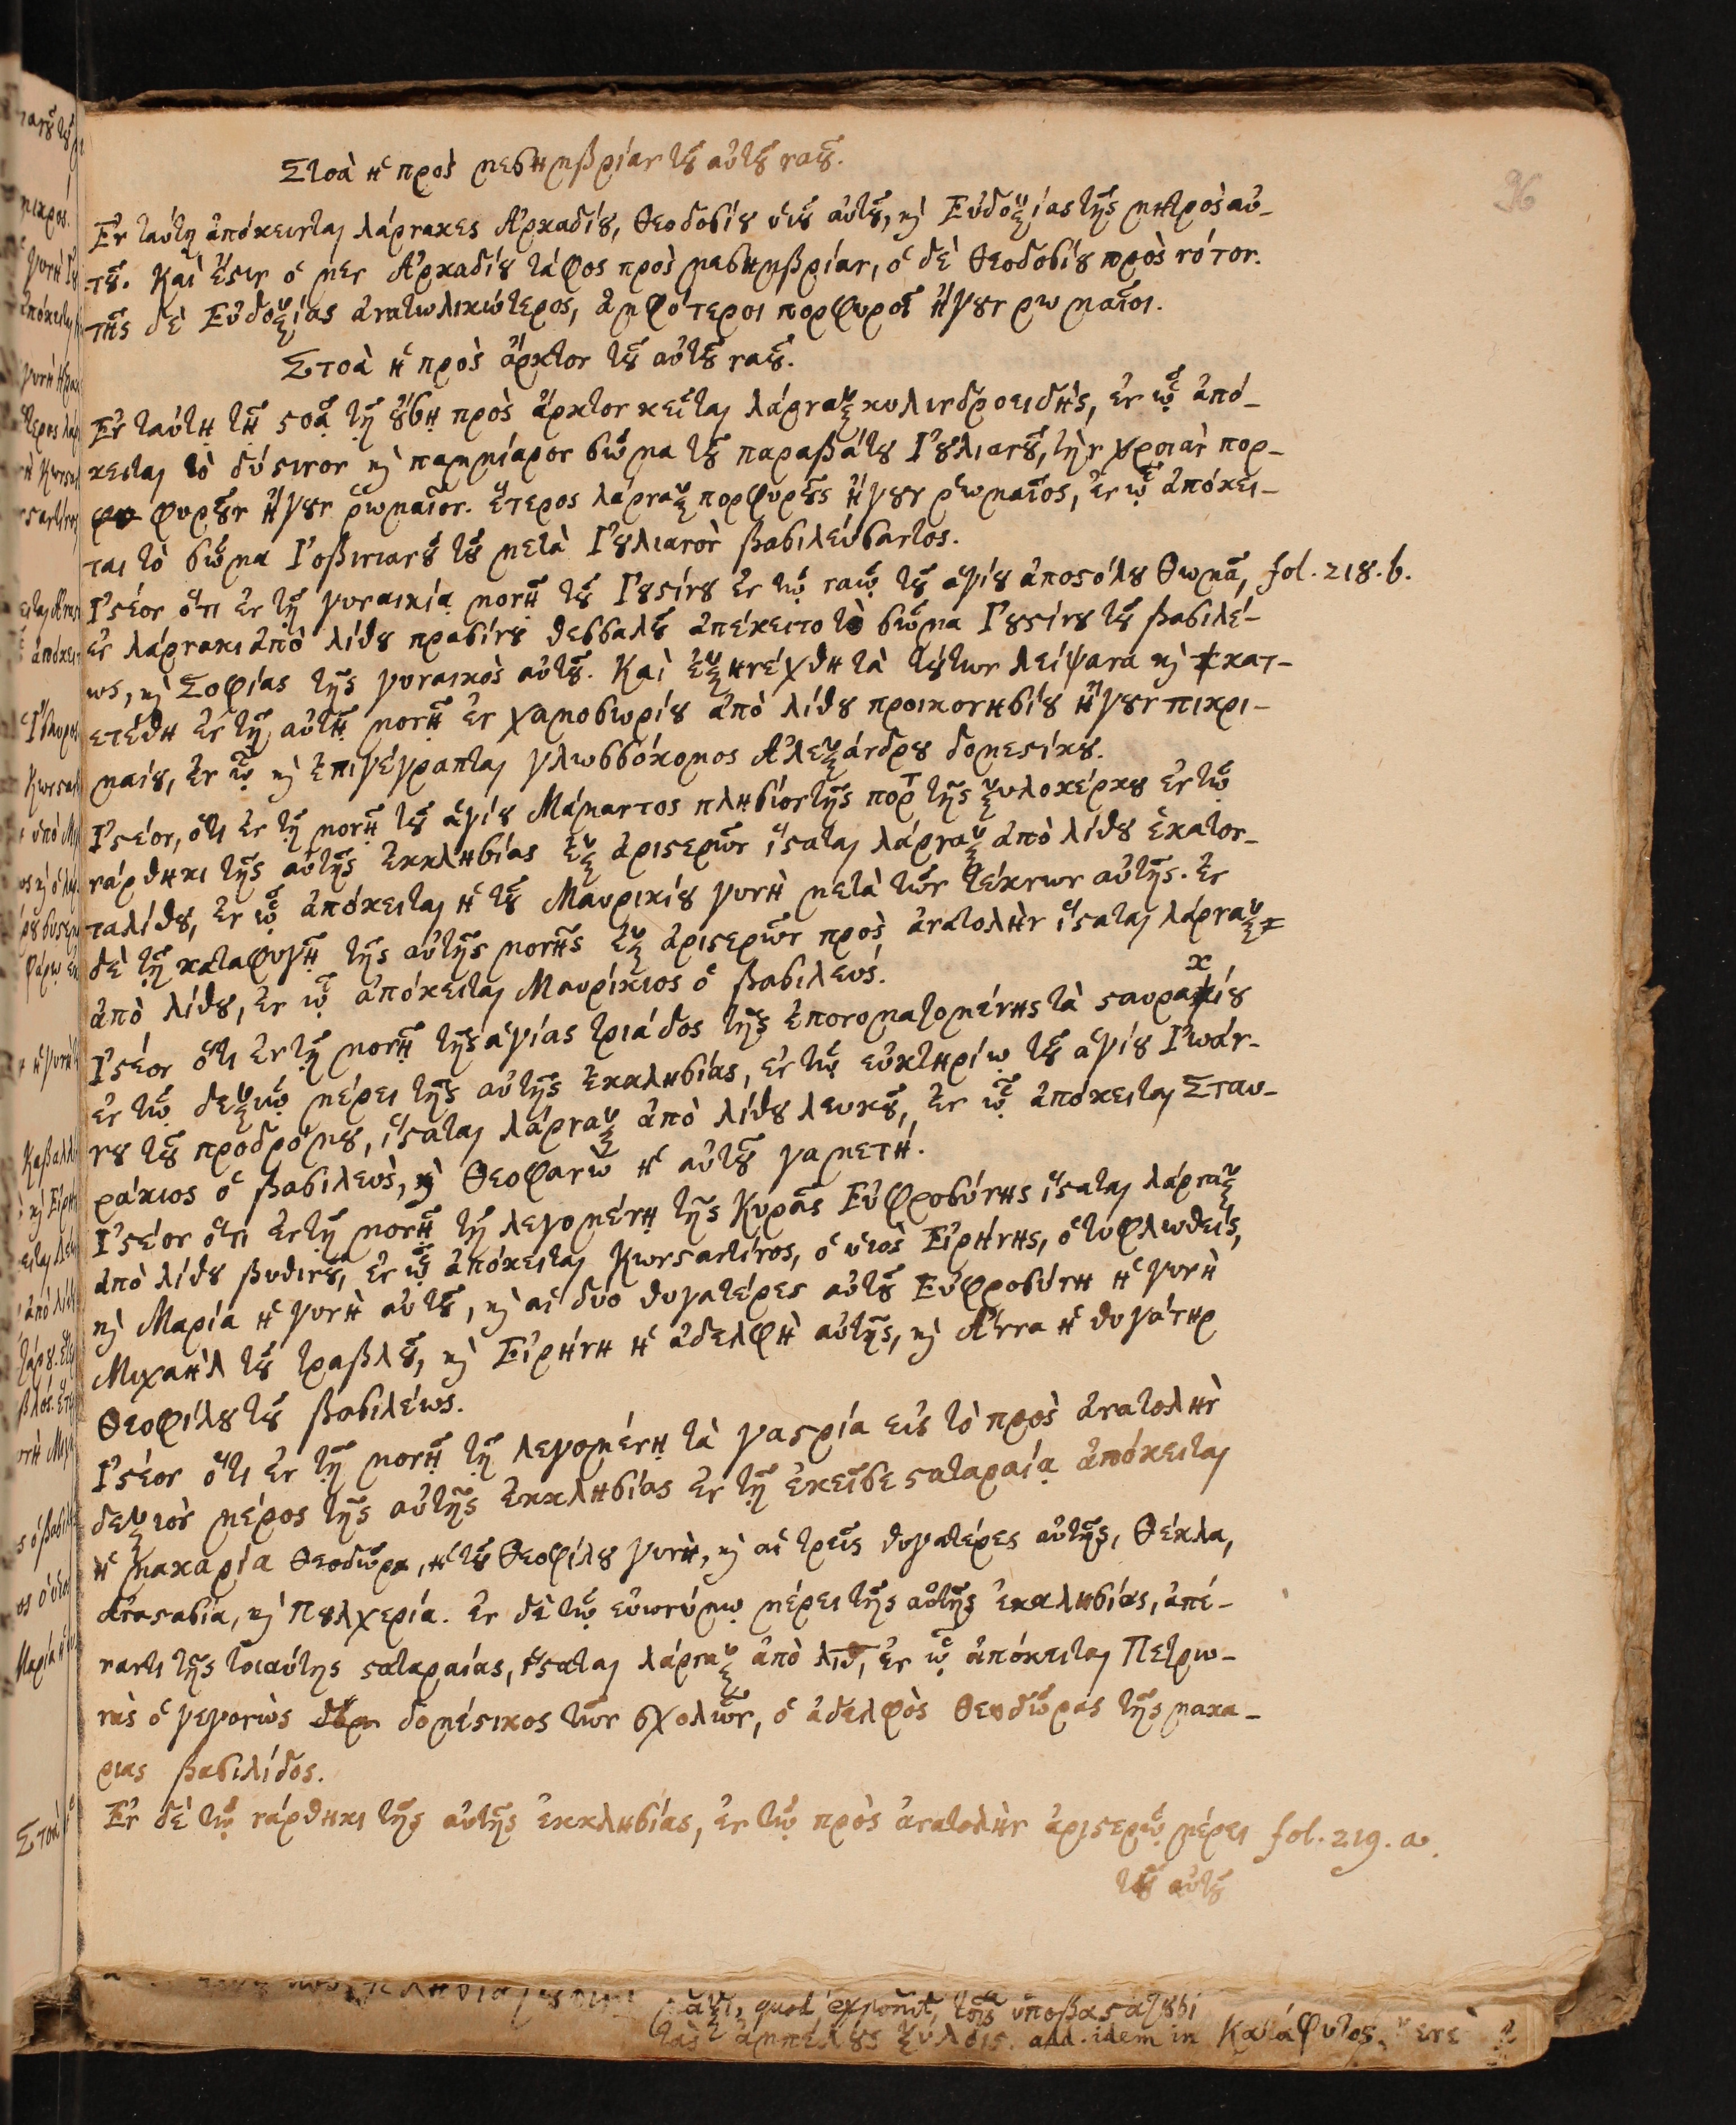 96
Στοὰ ἡ πρὸς μεσημβρίαν τοῦ αὐτοῦ ναοῦ.
Ἐν ταύτῃ ἀπόκεινται λάρνακες Ἀρκαδίου, Θεοδοσίου υἱοῦ αὐτοῦ, καὶ Εὐδοξίας τῆς μητρὸς αὐ-
τοῦ. Καὶ ἔστιν ὁ μεν Ἀρκαδίου τάφος πρὸς μεσημβρίαν, ὁ δὲ Θεοδοσίου πρὸς νότον.
τῆς δὲ Εὐδοξίας ἀνατωλικώτερος, ἀμφότεροι πορφυροῖ ἤγουν ρωμαῖοι.
Στοὰ ἡ πρὸς ἄρκτον τοῦ αὐτοῦ ναοῦ.
Ἐν ταύτῃ τῇ στοᾷ τῇ οὔσῃ πρὸς ἄρκτον κεῖται λάρναξ κυλινδροειδής, ἐν ᾧ ἀπό-
κειται τὸ δύστινον καὶ παμμίαρον σῶμα τοῦ παραβάτου Ἰουλιανοῦ, τὴν χροιὰν πορ-
φυροῦν ἤγουν ῥωμαῖον. ἕτερος λάρναξ πορφυροῦς ἤγουν ῥωμαῖος, ἐν ᾧ ἀπόκει-
ται τὸ σῶμα Ἰοβινιανοῦ τοῦ μετὰ Ἰουλιανὸν βασιλεύσαντος.
Ἰστέον ὅτι ἐν τῇ γυναικίᾳ μονῇ τοῦ Ἰουστίνου ἐν τῷ ναῷ τοῦ ἁγίου ἀποστόλου Θωμᾶ, fol. 218. b.
ἐν λάρνακι ἀπὸ λίθου πρασίνου θεσσαλοῦ ἀπέκειτο τὸ σῶμα Ἰουστίνου τοῦ βασιλέ-
ως, καὶ Σοφίας τῆς γυναικὸς αὐτοῦ. Καὶ ἐξηνέχθη τὰ τούτων λείψανα καὶ κατ-
ετέθη ἐν τῇ αὐτῇ μονῇ ἐν χαμοσωρίου ἀπὸ λίθου προικονησίου ἤγουν πικρι-
μαίου, ἐν ᾧ καὶ ἐπιγέγραπται γλωσσόκομος Ἀλεξάνδρου δομεστίκου.
Ἰστέον, ὅτι ἐν τῇ μονῇ τοῦ ἁγίου Μάμαντος πλησίον τῆς πόρτ τῆς ξυλοκέρκου ἐν τῷ
νάρθηκι τῆς αὐτῆς ἐκκλησίας ἐξ ἀριστερῶν ἵσταται λάρναξ ἀπὸ λίθου ἑκατον-
ταλίθου, ἐν ᾧ ἀπόκειται ἡ τοῦ Μαυρικίου γυνὴ μετὰ τῶν τέκνων αὐτῆς. ἐν
δὲ τῇ καταφυγῇ τῆς αὐτῆς μονῆς ἐξ ἀριστερῶν πρὸς ἀνατολὴν ἵσταται λάρναξ
ἀπὸ λίθου, ἐν ᾧ ἀπόκειται Μαυρίκιος ὁ βασιλευς.
Ἰστέον ὅτι ἐν τῇ μονῇ τῆς ἁγίας τριάδος τῆς ἐπονοματομένης τὰ σταυρακίου
ἐν τῷ δεξιῷ μέρει τῆς αὐτῆς ἐκκλησίας, ἐν τῷ εὐκτηρίῳ τοῦ ἁγίου Ἰωάν-
νου τοῦ προδρόμου, ἵσταται λάρναξ ἀπὸ λίθου λευκοῦ, ἐν ᾧ ἀπόκειται Σταυ-
ράκιος ὁ βασιλεὺς, καὶ Θεοφανὼ ἡ αὐτοῦ γαμετή.
Ἰστέον ὅτι ἐν τῇ μονῇ τῇ λεγομένῃ τῆς Κυρᾶς Εὐφροσύνης ἵσταται λάρναξ
ἀπὸ λίθου βυθινοῦ, ἐν ᾧ ἀπόκειται Κωνσταντίνος, ὁ υἱὸς Εἰρήνης, ὁ τυφλωθείς,
καὶ Μαρία ἡ γυνὴ αὐτοῦ, καὶ αἱ δύο θυγατέρες αὐτοῦ Εὐφροσύνη ἡ γυνὴ
Μιχαὴλ τοῦ τραβλοῦ, καὶ Εἰρήνη ἡ ἀδελφὴ αὐτῆς, καὶ Ἄννα ἡ θυγάτηρ
Θεοφίλου τοῦ βασιλέως.
Ἰστέον ὅτι ἐν τῇ μονῇ τῇ λεγομένῃ τὰ γαστρία εἰς τὸ πρὸς ἀνατολὴν
δεξιὸν μέρος τῆς αὐτῆς ἐκκλησίας ἐν τῇ ἐκεῖσε σταταραίᾳ ἀπόκειται
ἡ μακαρία Θεοδώρα, ἡ τοῦ Θεοφίλου γυνὴ, καὶ αἱ τρεῖς θυγατέρες αὐτῆς, Θέκλα,
Ἀναστασία, καὶ Πουλχερία. ἐν δὲ τῷ εὐωνύμῳ μέρει τῆς αὐτῆς ἐκκλησίας, ἀπέ-
ναντι τῆς τοιαύτης σταταραίας, ἵσταται λάρναξ ἀπὸ λιθ, ἐν ᾧ ἀπόκειται Πετρω-
νὰς ὁ γεγονὼς δομέστικος τῶν σχολῶν, ὁ ἀδελφὸς Θεοδώρας τῆς μακα-
ριας βασιλίδος.
Ἐν δὲ τῷ νάρθηκι τῆς αὐτῆς ἐκκλησίας, ἐν τῷ πρὸς ἀνατολὴν ἀριστερῷ μέρει fol. 219. a.
τοῦ αὐτοῦ
quod exponit, τοῖς ὑποβαστάζουσι
τὰς ἀμπέλους ξύλοις. add. idem in Κατάφυτος.